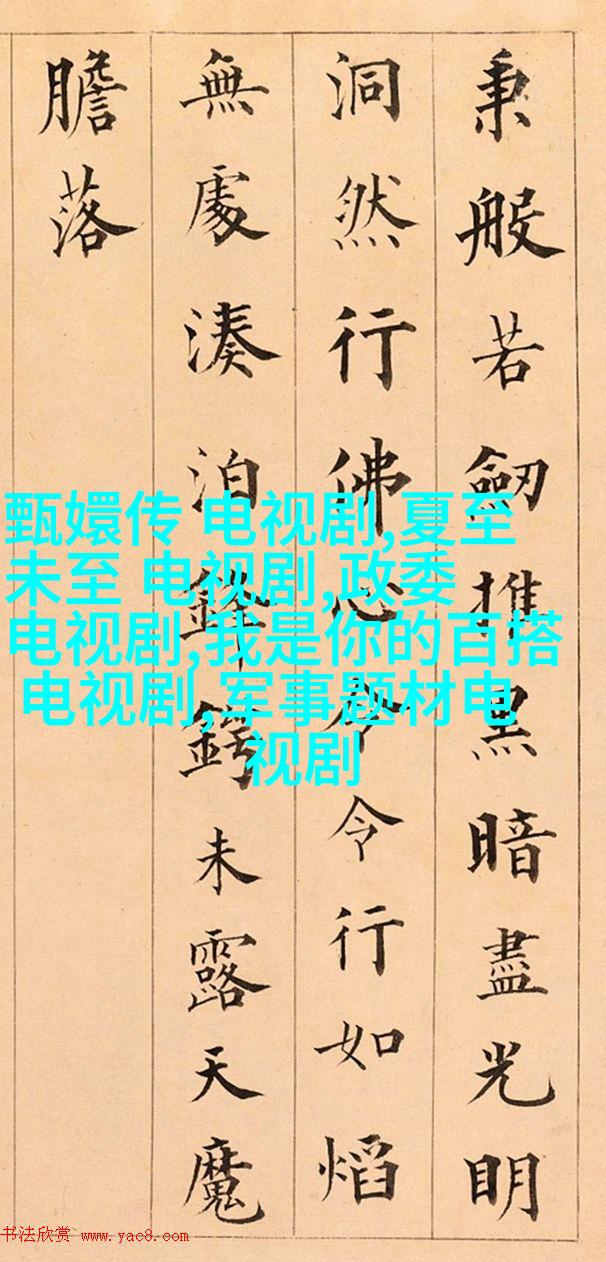 秉般若劒推黑暗盡光明
洞然行佛心令令行如熖
無處湊泊鋒鍔未露天魔
膽落
甄嬛传 电视剧,夏至
未至 电视剧,政委
电视剧,我是你的百搭
电视剧,军事题材电
视剧
书法欣赏 www.yac8.com